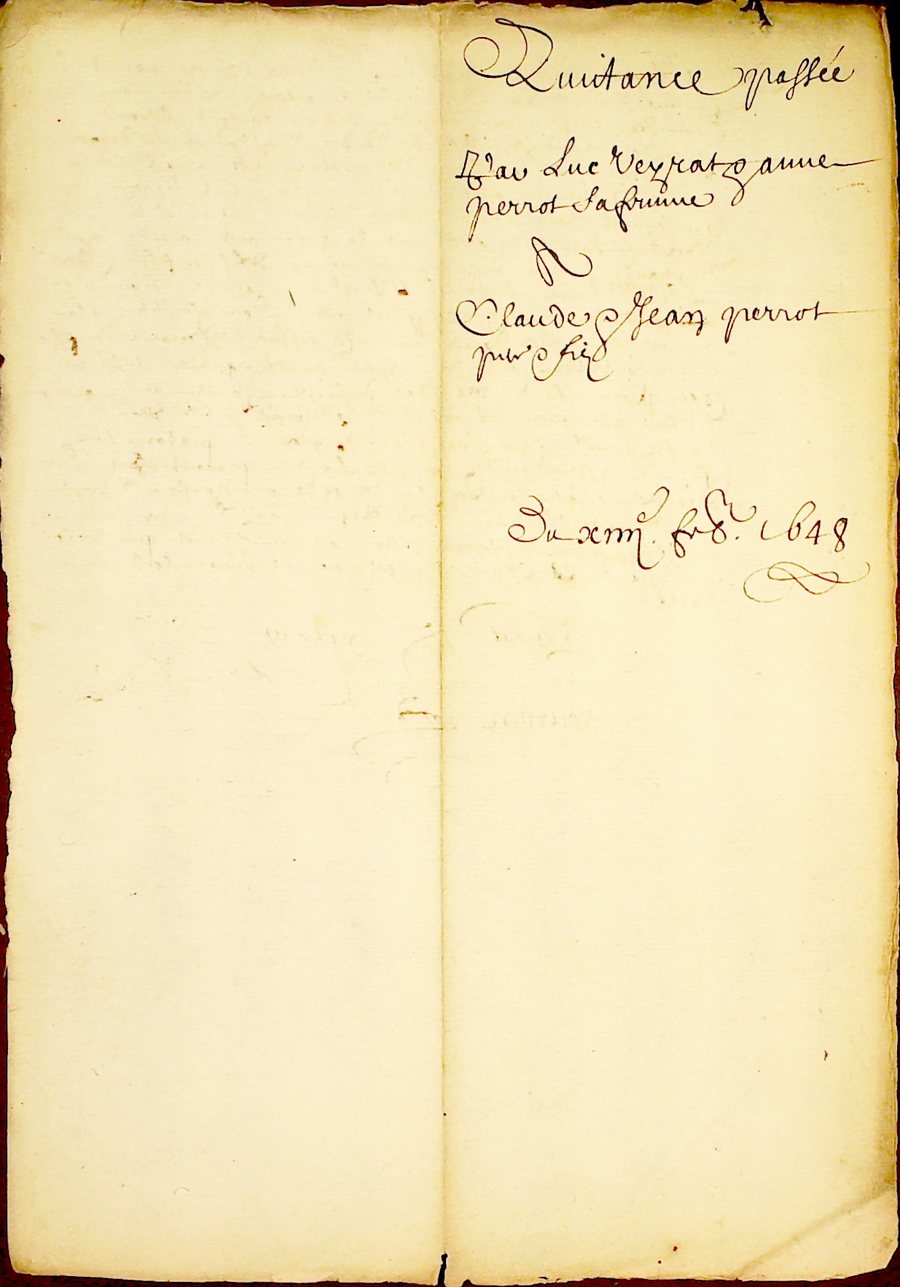 Quittance passée
Par Luc Veyrat & anne
perrot sa femme
A
Claude & Jean perrot
pere & filz
Du xiiii.e feb.r 1648